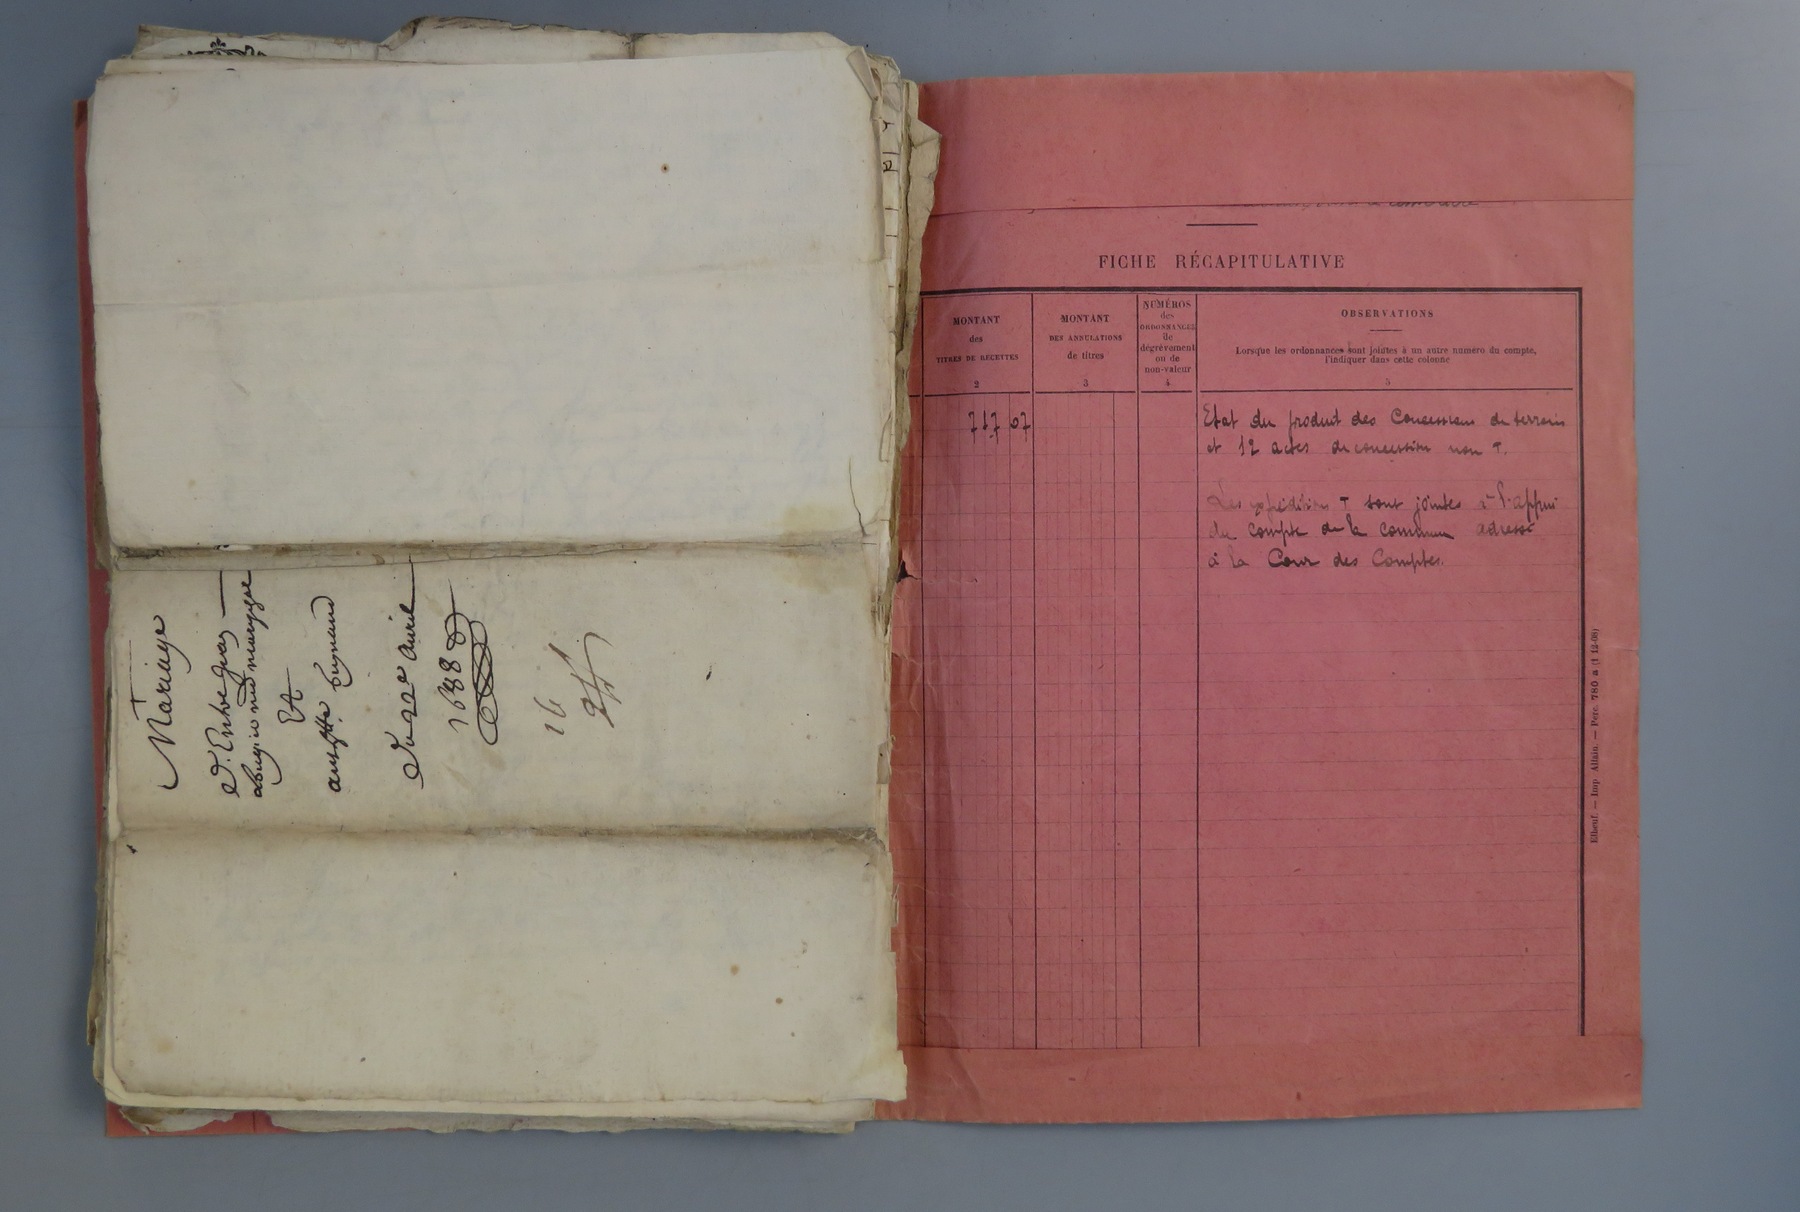 Mariage
d'Entre
Et
du 22e auril
1688
16
FICHE RÉCAPITULATIVE
MONTANT
des
TITRES DE RECETTES
2
MONTANT
DES ANNULATIONS
de titres
3
NUMÉROS
des
ORDONNANCES
de
dégrèvement
ou de
non-valeur
4
OBSERVATIONS
Lorsque les ordonnances sont jointes à un autre numéro du compte,
l'indiquer dans cette colonne
5
717 07
Etat du produit des Concessions de terrain
et 12 actes de concession non T.
Les expéditions T sont jointes à l'appui
du compte de la commune adressé
à la Cour des Comptes.
Elbeuf. — Imp. Allain. — Perc. 780 a (1 12-08)